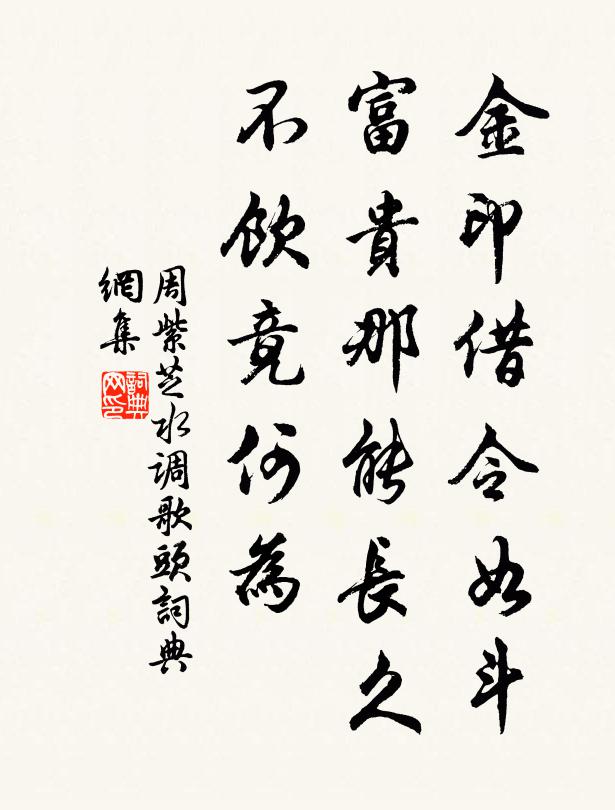 金印借令如斗
富貴那能長久
不飲竟何為
周紫芝水调歌頭詞典
網集
詞典
网印